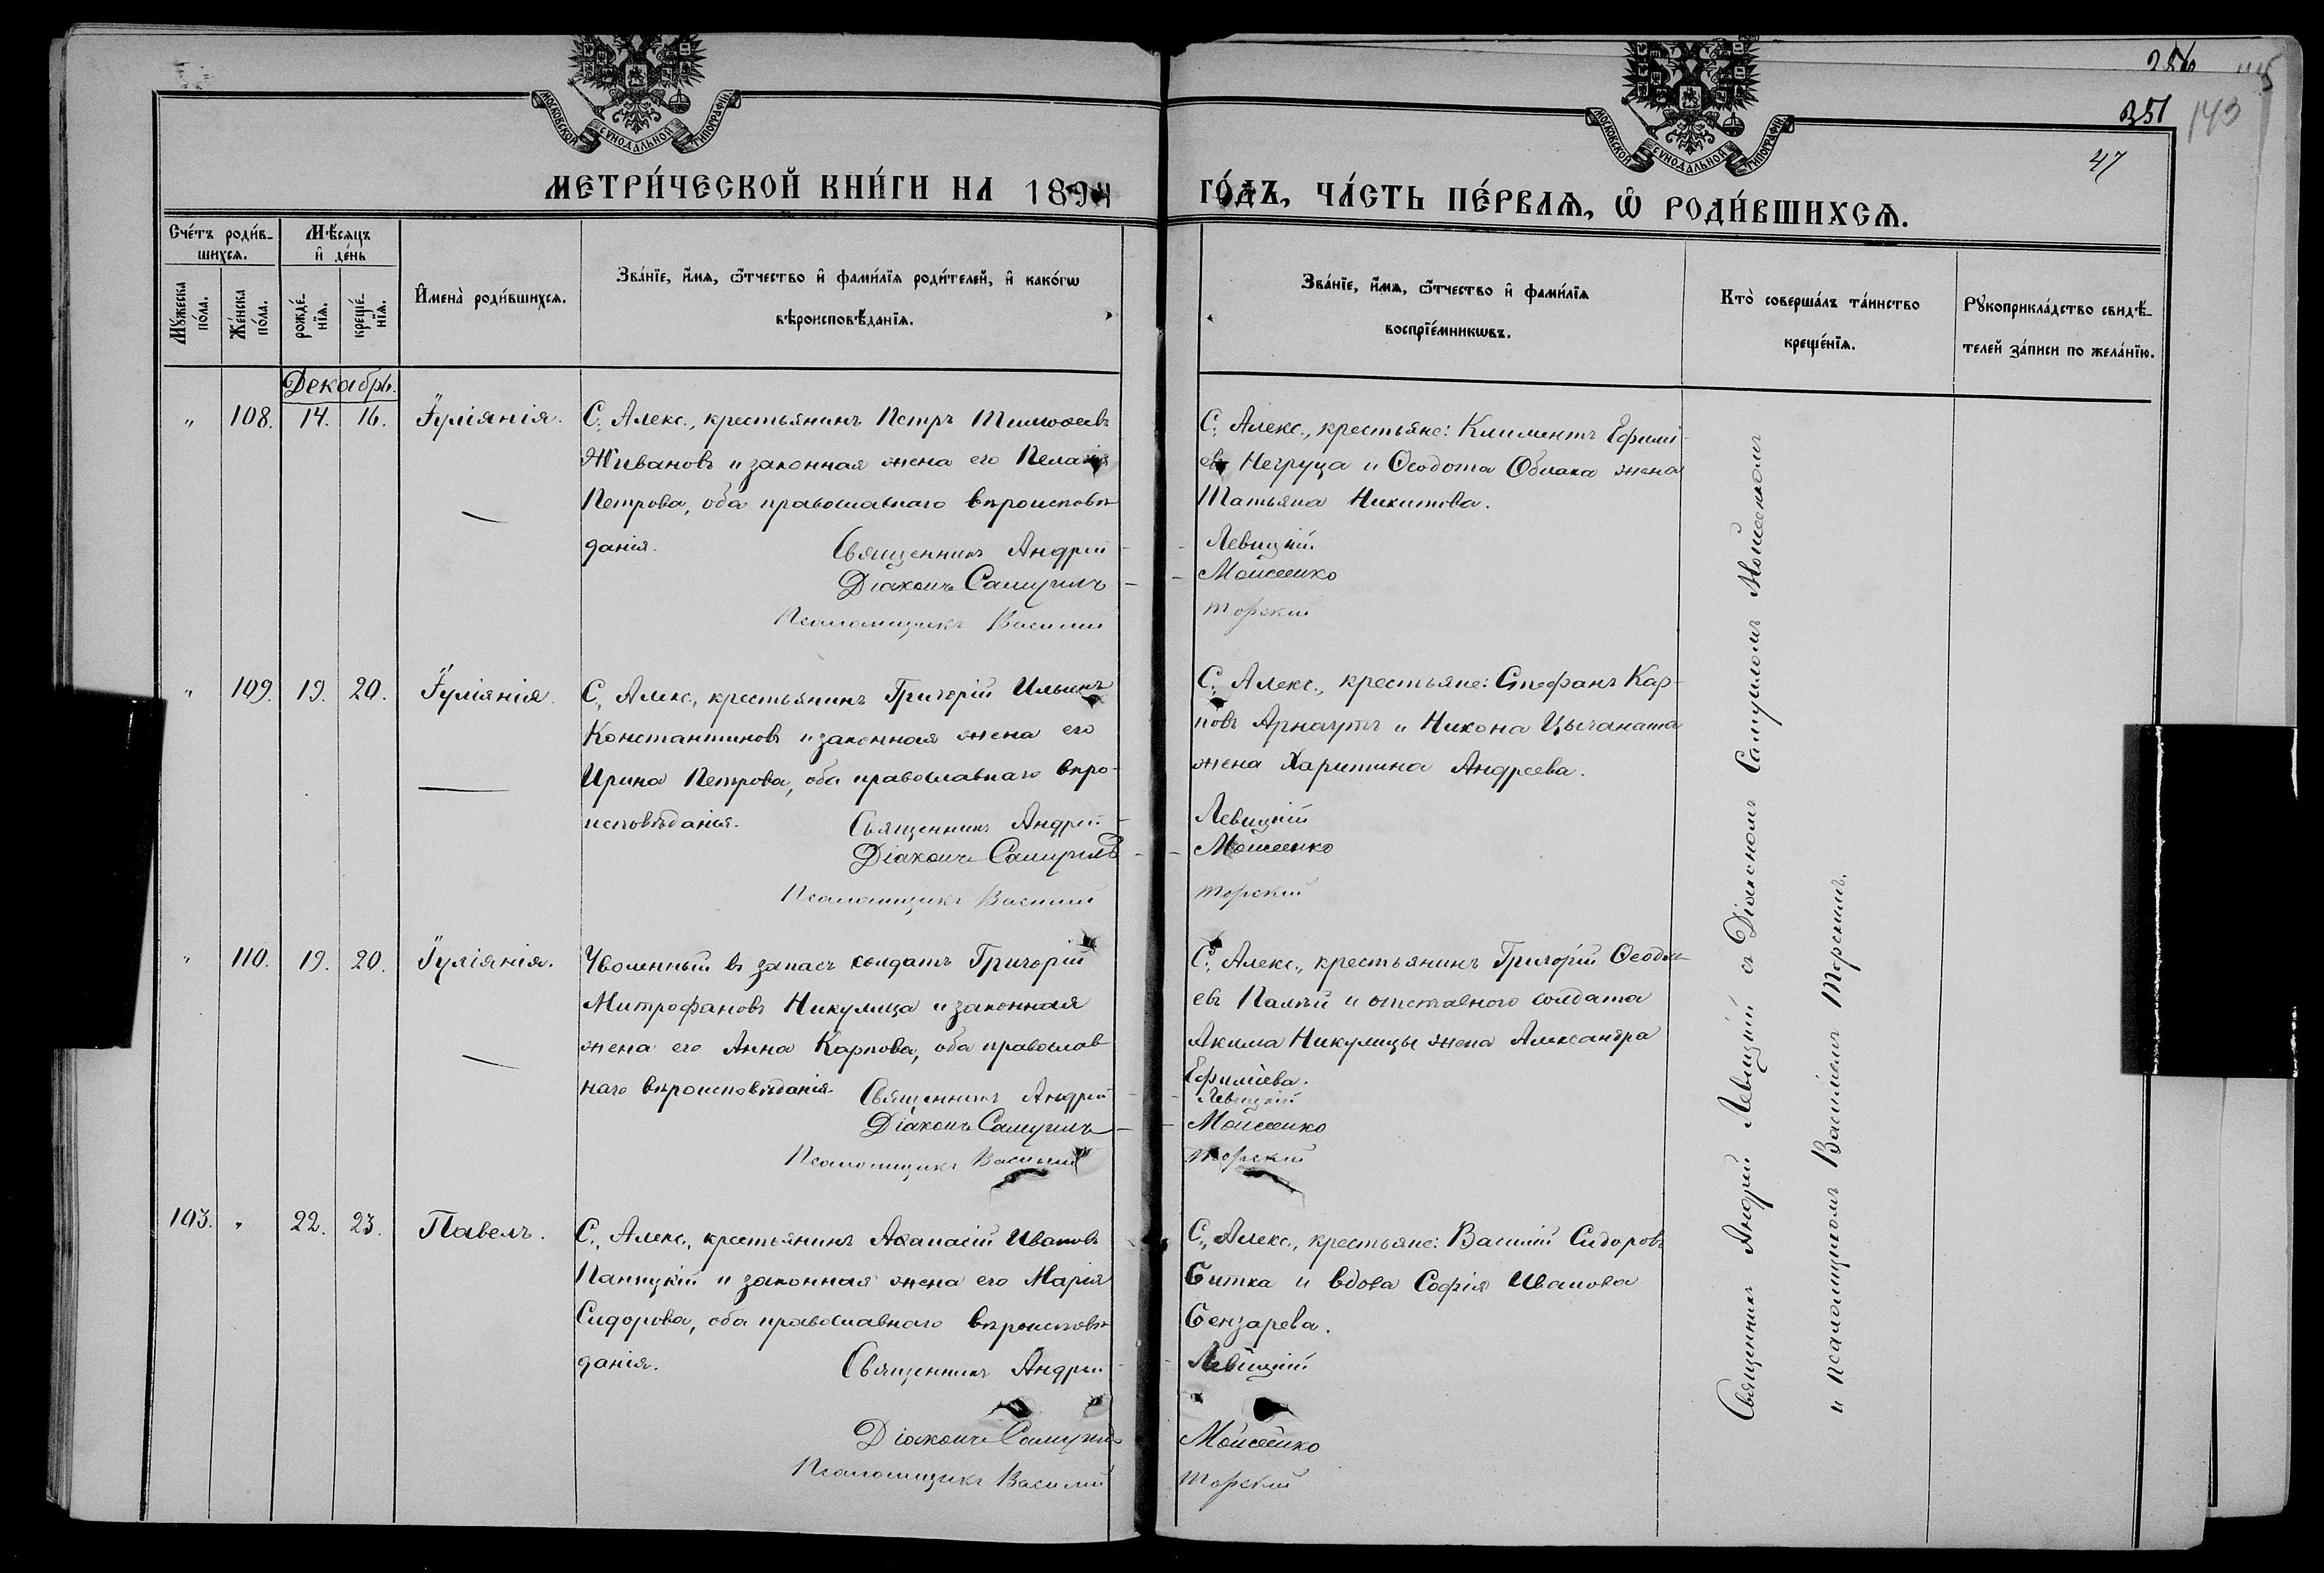 МОСКОВСКОЙ СѴНОДАЛЬНОЙ ТИПОГРАФІИ
МОСКОВСКОЙ СѴНОДАЛЬНОЙ ТИПОГРАФІИ
351
143
47
МЕТРИ́ЧЕСКОЙ КНИ́ГИ НА 1894
ГО́ДЪ, ЧА́СТЬ ПЕ́РВАѦ, Ѡ҆ РОДИ́ВШИХСѦ.
Сче́тъ роди́в-
шихсѧ.
Мꙋ́жеска
по́ла.
Же́нска
по́ла.
Мѣ́сѧцъ
и҆ де́нь
рожде́-
нїѧ.
креще́-
нїѧ.
И҆мена̀ роди́вшихсѧ.
Зва́нїе, и҆́мѧ, ѻ҆́тчество и҆ фами́лїѧ роди́телей, и҆ како́гѡ
вѣроисповѣ́данїѧ.
Зва́нїе, и҆́мѧ, ѻ҆́тчество и҆ фами́лїѧ
воспрїе́мникѡвъ.
Кто̀ соверша́лъ та́инство
креще́нїѧ.
Рꙋкоприкла́дство свидѣ́-
телей за́писи по жела́нїю.
Декабрь.
„ 108. 14. 16. Іуліянія.
С. Алекс., крестьянинъ Петръ Тимоѳеевъ
Живановъ и законная жена его Пелагія
Петрова, оба православнаго вѣроисповѣ-
данія.
Священникъ Андрей -
Діаконъ Самуилъ -
Псаломщикъ Василий
С. Алекс., крестьяне: Климентъ Ефимі-
евъ Негруца и Ѳеодота Облака жена
Татьяна Никитова.
- Левицкій
- Моисеенко
Торский
„ 109. 19. 20. Іуліянія.
С. Алекс., крестьянинъ Григорій Ильинъ
Константиновъ и законная жена его
Ирина Петрова, оба православнаго вѣро-
исповѣданія.
Священникъ Андрей -
Діаконъ Самуилъ -
Псаломщикъ Василий
С. Алекс., крестьяне: Стефанъ Кар-
повъ Арнаутъ и Никона Цыганаша
жена Харитина Андреева.
Левицкій
- Моисеенко
Торский
„ 110. 19. 20. Іуліянія.
Уволенный въ запасъ солдатъ Григорій
Митрофановъ Никулица и законная
жена его Анна Карпова, оба православ-
наго вѣроисповѣданія.
Священникъ Андрей -
Діаконъ Самуилъ -
Псаломщикъ Василий
С. Алекс., крестьянинъ Григорій Ѳеодос-
евъ Палій и отставного солдата
Акима Никулицы жена Александра
Ефимиева.
- Левицкій
- Моисеенко
Торский
103. „ 22. 23. Павелъ.
С. Алекс., крестьянинъ Аѳанасій Ивановъ
и законная жена его Марія
Сидорова, оба православнаго вѣроисповѣ-
данія.
Священникъ Андрей -
Діаконъ Самуилъ
Псаломщикъ Василий
С. Алекс., крестьяне: Василій Сидоровъ
Ситка и вдова Софія Иванова
Бензарева.
- Левицкій
Моисеенко
Торский
Священникъ Андрей Левицкій съ Діакономъ Самуиломъ Моисеенкомъ
и псаломщикомъ Василіемъ Торскимъ.